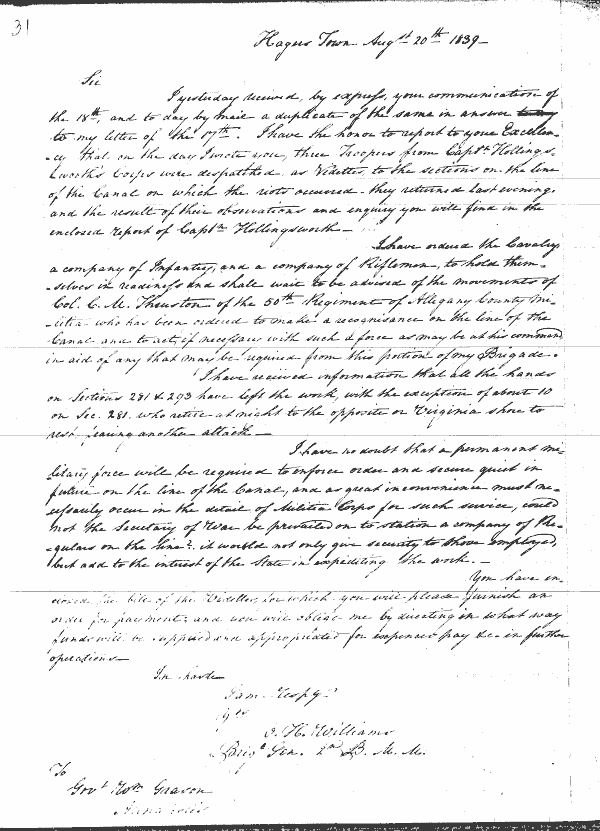 31
Hagers Town Augst 20th 1839-
Sir
I yesterday received, by express, your communication of
the 18th, and to day by mail a duplicate of the same in answer
to my letter of the 17th. I have the honor to report to your Excellen-
-cy that on the day I wrote you, three Troopers from Captn Hollings-
worth's Corps were despatched, as Videttes, to the sections on the line
of the Canal on which the riots occurred - they returned last evening,
and the result of their observations and enquiry you will find in the
enclosed report of Captn Hollingsworth -
I have ordered the Cavalry
a company of Infantry, and a company of Riflemen, to hold them-
-selves in readiness and shall wait to be advised of the movements of
Col. C. M. Thruston of the 50th Regiment of Allegany County Mi-
-litia who has been ordered to make a recognisance on the line of the
Canal and to act, if necessary with such a force as may be at his command
in aid of any that may be required from this portion of my Brigade.
I have received information that all the hands
on Sections 281 & 293 have left the work, with the exception of about 10
on Sec. 281. who retire at night to the opposite or Virginia shore to
rest, fearing another attack -
I have no doubt that a permanent mi-
litary force will be required to enforce order and secure quiet in
future on the line of the Canal, and as great inconvenience must ne-
-cessarily occur in the detail of Militia Corps for such service, could
not the Secretary of War be prevailed on to station a company of Re-
-gulars on the line?. it would not only give security to those employed,
but add to the interest of the State in expediting the work. -
You have en-
closed the bill of the Videttes, for which you will please furnish an
order for payment: and you will oblige me by directing in what way
funds will be supplied and appropriated for expenses pay &c in further
operations -
In haste
I am Respy
Yrs
O. H. Williams
Brigr Gen. 2nd B. M. M.
To
Govr Wm Grason
Annapolis